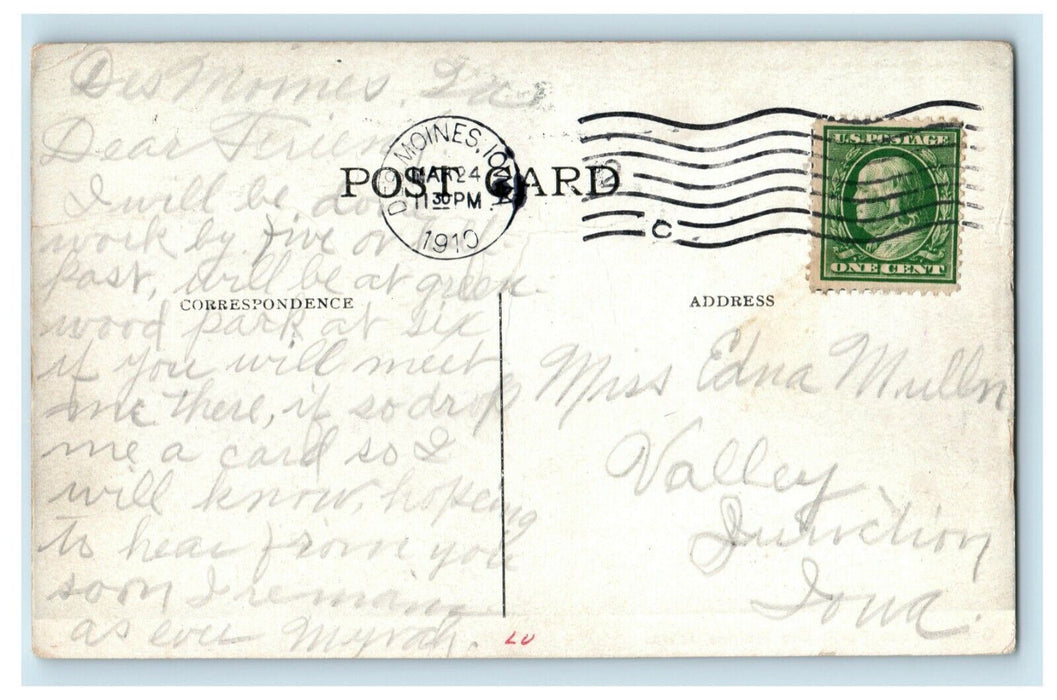 Des Moines, Ia
Dear Friend
I will be down
work by five or
past, will be at green-
wood park at six
if you will meet
me there, if so drop
me a card so I
will know, hopeing
to hear from you
soon I remain
as ever Myrah.
POST CARD
CORRESPONDENCE
DES MOINES, IOWA
MAR 24
11 30 PM
1910
C
U.S. POSTAGE
ONE CENT
ADDRESS
Miss Edna Mulln
Valley
Junction
Iowa.
LU